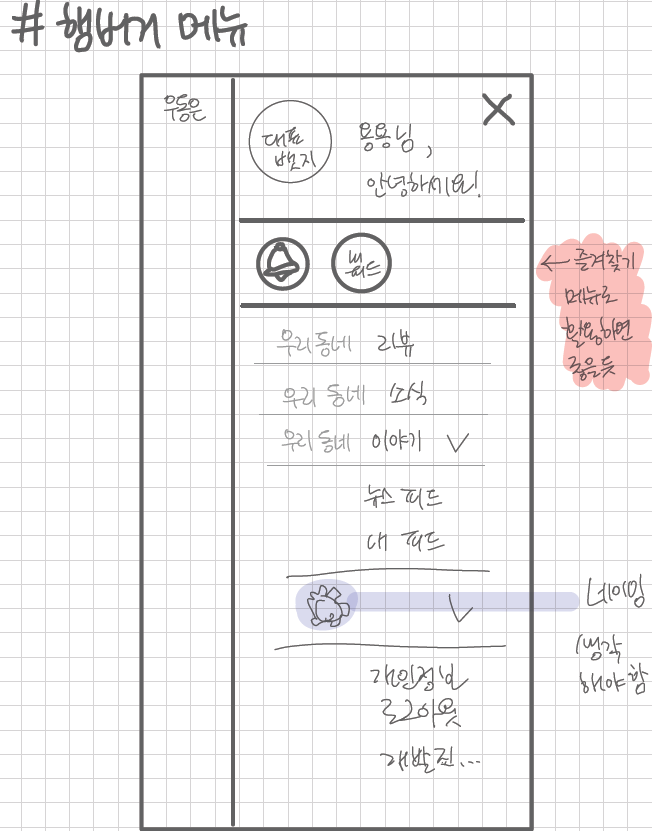 # 햄버거 메뉴
우동은
대표
뱃지
용용님,
안녕하세요!
피드
← 즐겨찾기
메뉴로
활용하면
좋을듯
우리동네 리뷰
우리 동네 소식
우리 동네 이야기
뉴스 피드
내 피드
네이밍
생각
해야 함
개인정보
로그아웃
개발진...